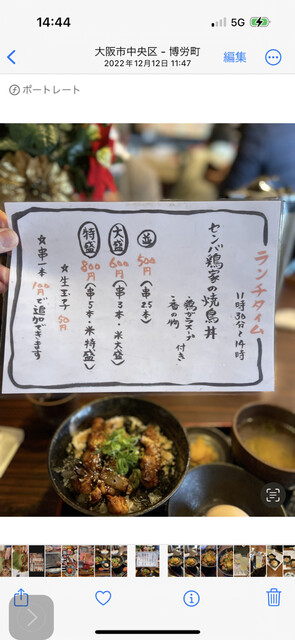 14:44
5G
大阪市中央区 - 博労町
2022年12月12日 11:47
編集
ポートレート
ランチタイム
11時30分と14時
センバ鶏家の焼鳥丼
・鶏ガラスープ 付き
・香の物
並 500円（串2.5本）
大盛 600円（串3本・米大盛）
特盛 800円（串5本・米特盛）
☆生玉子 50円
☆串一本 100円で追加できます